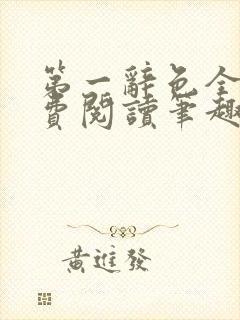 第一辭色全
費閱讀筆趣
黃進發